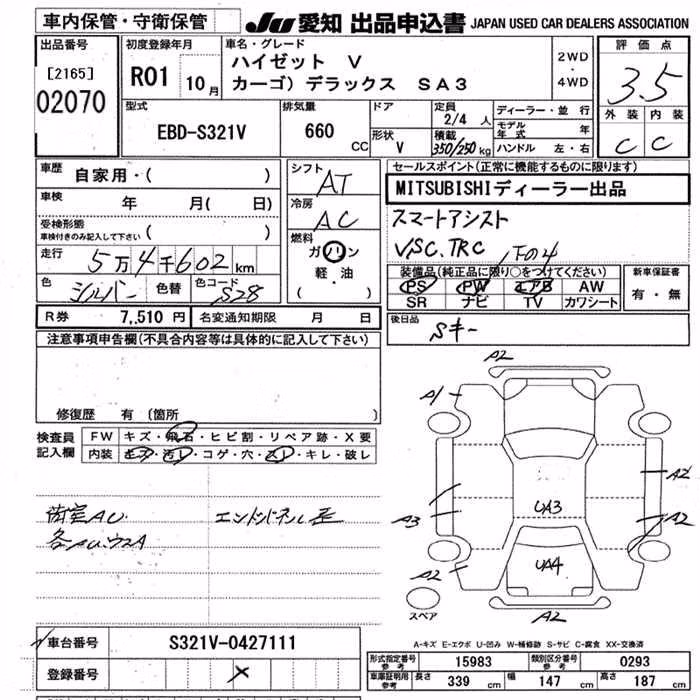 車内保管・守衛保管
JU 愛知 出品申込書 JAPAN USED CAR DEALERS ASSOCIATION
出品番号
[2165]
02070
初度登録年月
R01 10 月
車名・グレード
ハイゼット V
カーゴ) デラックス SA3
2WD
・
4WD
評価点
3.5
外装 内装
C C
型式
EBD-S321V
排気量
660 CC
ドア
形状 V
定員
2/4 人
積載
350/250 kg
ディーラー・並行
モデル年式 年
ハンドル 左・右
車歴
自家用・( )
車検
年 月( 日)
受検形態
車検付きのみ記入して下さい ( )
走行
5万4千602 km
色
シルバー 色替 色コード S28
シフト
AT
冷房
AC
燃料
ガソリン
軽・油
( )
セールスポイント(正常に機能するものに限ります)
MITSUBISHIディーラー出品
スマートアシスト
V/SC.TRC 下の4
装備品(純正品に限り○をつけてください)
PS PW エアB AW
SR ナビ TV カワシート
新車保証書
有・無
R券 7,510 円 名変通知期限 月 日
後日品
Sキー
注意事項申告欄(不具合内容等は具体的に記入して下さい)
修復歴 有 〔箇所 )
検査員
記入欄
FW キズ・飛石・ヒビ割・リペア跡・X要
内装 キズ・汚レ・コゲ・穴・スレ・キレ・破レ
荷室AU
各AU.ウスA
A2
A1
A2
A3
UA3
A2
A2
UA4
A2
スペア
A-キズ E-エクボ U-凹み W-補修跡 S-サビ C-腐食 XX-交換済
車台番号 S321V-0427111
登録番号
形式指定番号 参考 15983 類別区分番号 参考 0293
車庫証明用 参考 長さ 339 cm 幅 147 cm 高さ 187 cm